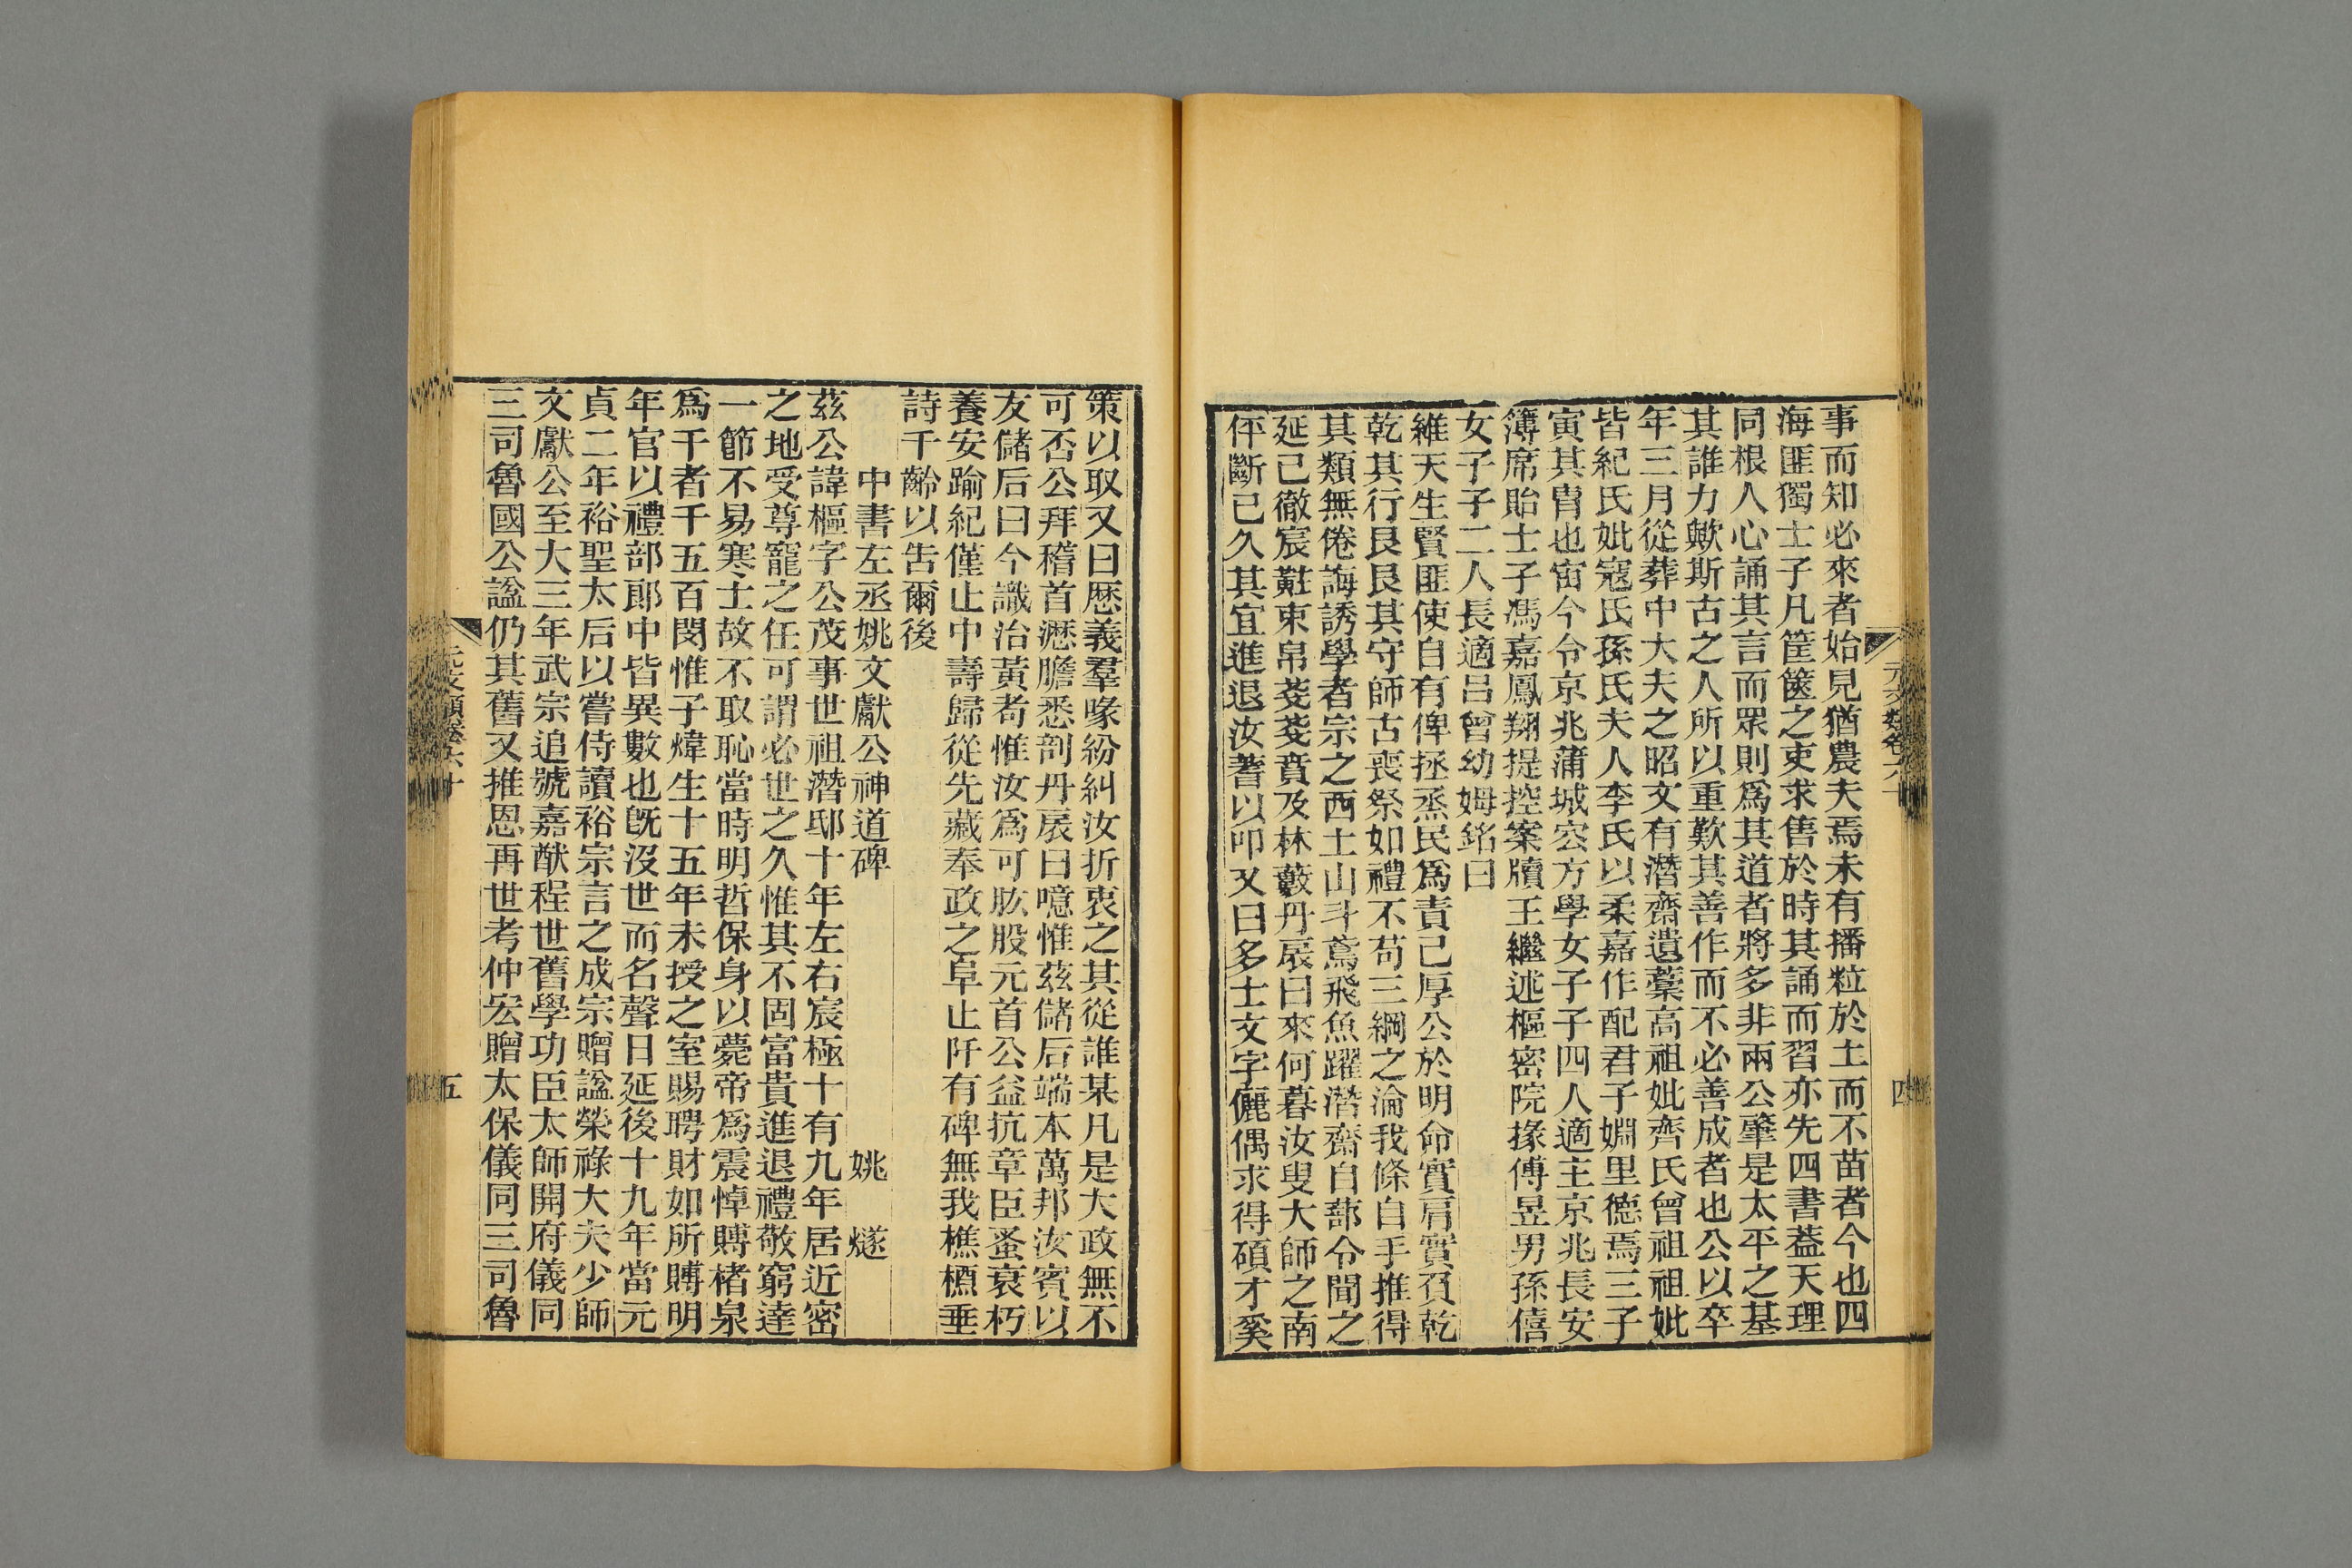 事而知必來者始見猶農夫焉未有播粒於土而不苗者今也四
海匪獨士子凡筐篋之吏求售於時其誦而習亦先四書葢天理
同根人心誦其言而眾則爲其道者將多非兩公肇是太平之基
其誰力歟斯古之人所以重歎其善作而不必善成者也公以卒
年三月從葬中大夫之昭文有潛齋遺藁高祖妣齊氏曾祖祖妣
皆紀氏妣寇氏孫氏夫人李氏以柔嘉作配君子媚里德焉三子
寅其胄也宙今令京兆蒲城宏方學女子子四人適主京兆長安
簿席貽士子馮嘉鳳翔提控案牘王繼述樞密院掾傅昱男孫僖
女子子二人長適呂曾幼姆銘曰
維天生賢匪使自有俾拯烝民爲責己厚公於明命實肩實負乾
乾其行艮艮其守師古喪祭如禮不苟三綱之淪我條自手推得
其類無倦誨誘學者宗之西土山斗鳶飛魚躍潛齋自蔀令聞之
延已徹宸黈束帛戔戔賁及林藪丹扆曰來何暮汝叟大師之南
伻斷已久其宜進退汝蓍以叩又曰多士文字儷偶求得碩才奚
元文類卷六十
四
策以取又曰厯義羣喙紛糾汝折衷之其從誰某凡是大政無不
可否公拜稽首瀝膽悉剖丹扆曰噫惟茲儲后端本萬邦汝賓以
友儲后曰今識治黃耇惟汝爲可肱股元首公益抗章臣蚤衰朽
養安踰紀僅止中壽歸從先藏奉政之阜止阡有碑無我樵槱垂
詩千齡以告爾後
中書左丞姚文獻公神道碑
姚燧
茲公諱樞字公茂事世祖潛邸十年左右宸極十有九年居近密
之地受尊寵之任可謂必世之久惟其不固富貴進退禮敬窮達
一節不易寒士故不取恥當時明哲保身以薨帝爲震悼賻楮泉
爲千者千五百閔惟子煒生十五年未授之室賜聘財如所賻明
年官以禮部郎中皆異數也旣沒世而名聲日延後十九年當元
貞二年裕聖太后以嘗侍讀裕宗言之成宗贈諡榮祿大夫少師
文獻公至大三年武宗追號嘉猷程世舊學功臣太師開府儀同
三司魯國公諡仍其舊又推恩再世考仲宏贈太保儀同三司魯
元文類卷六十
五